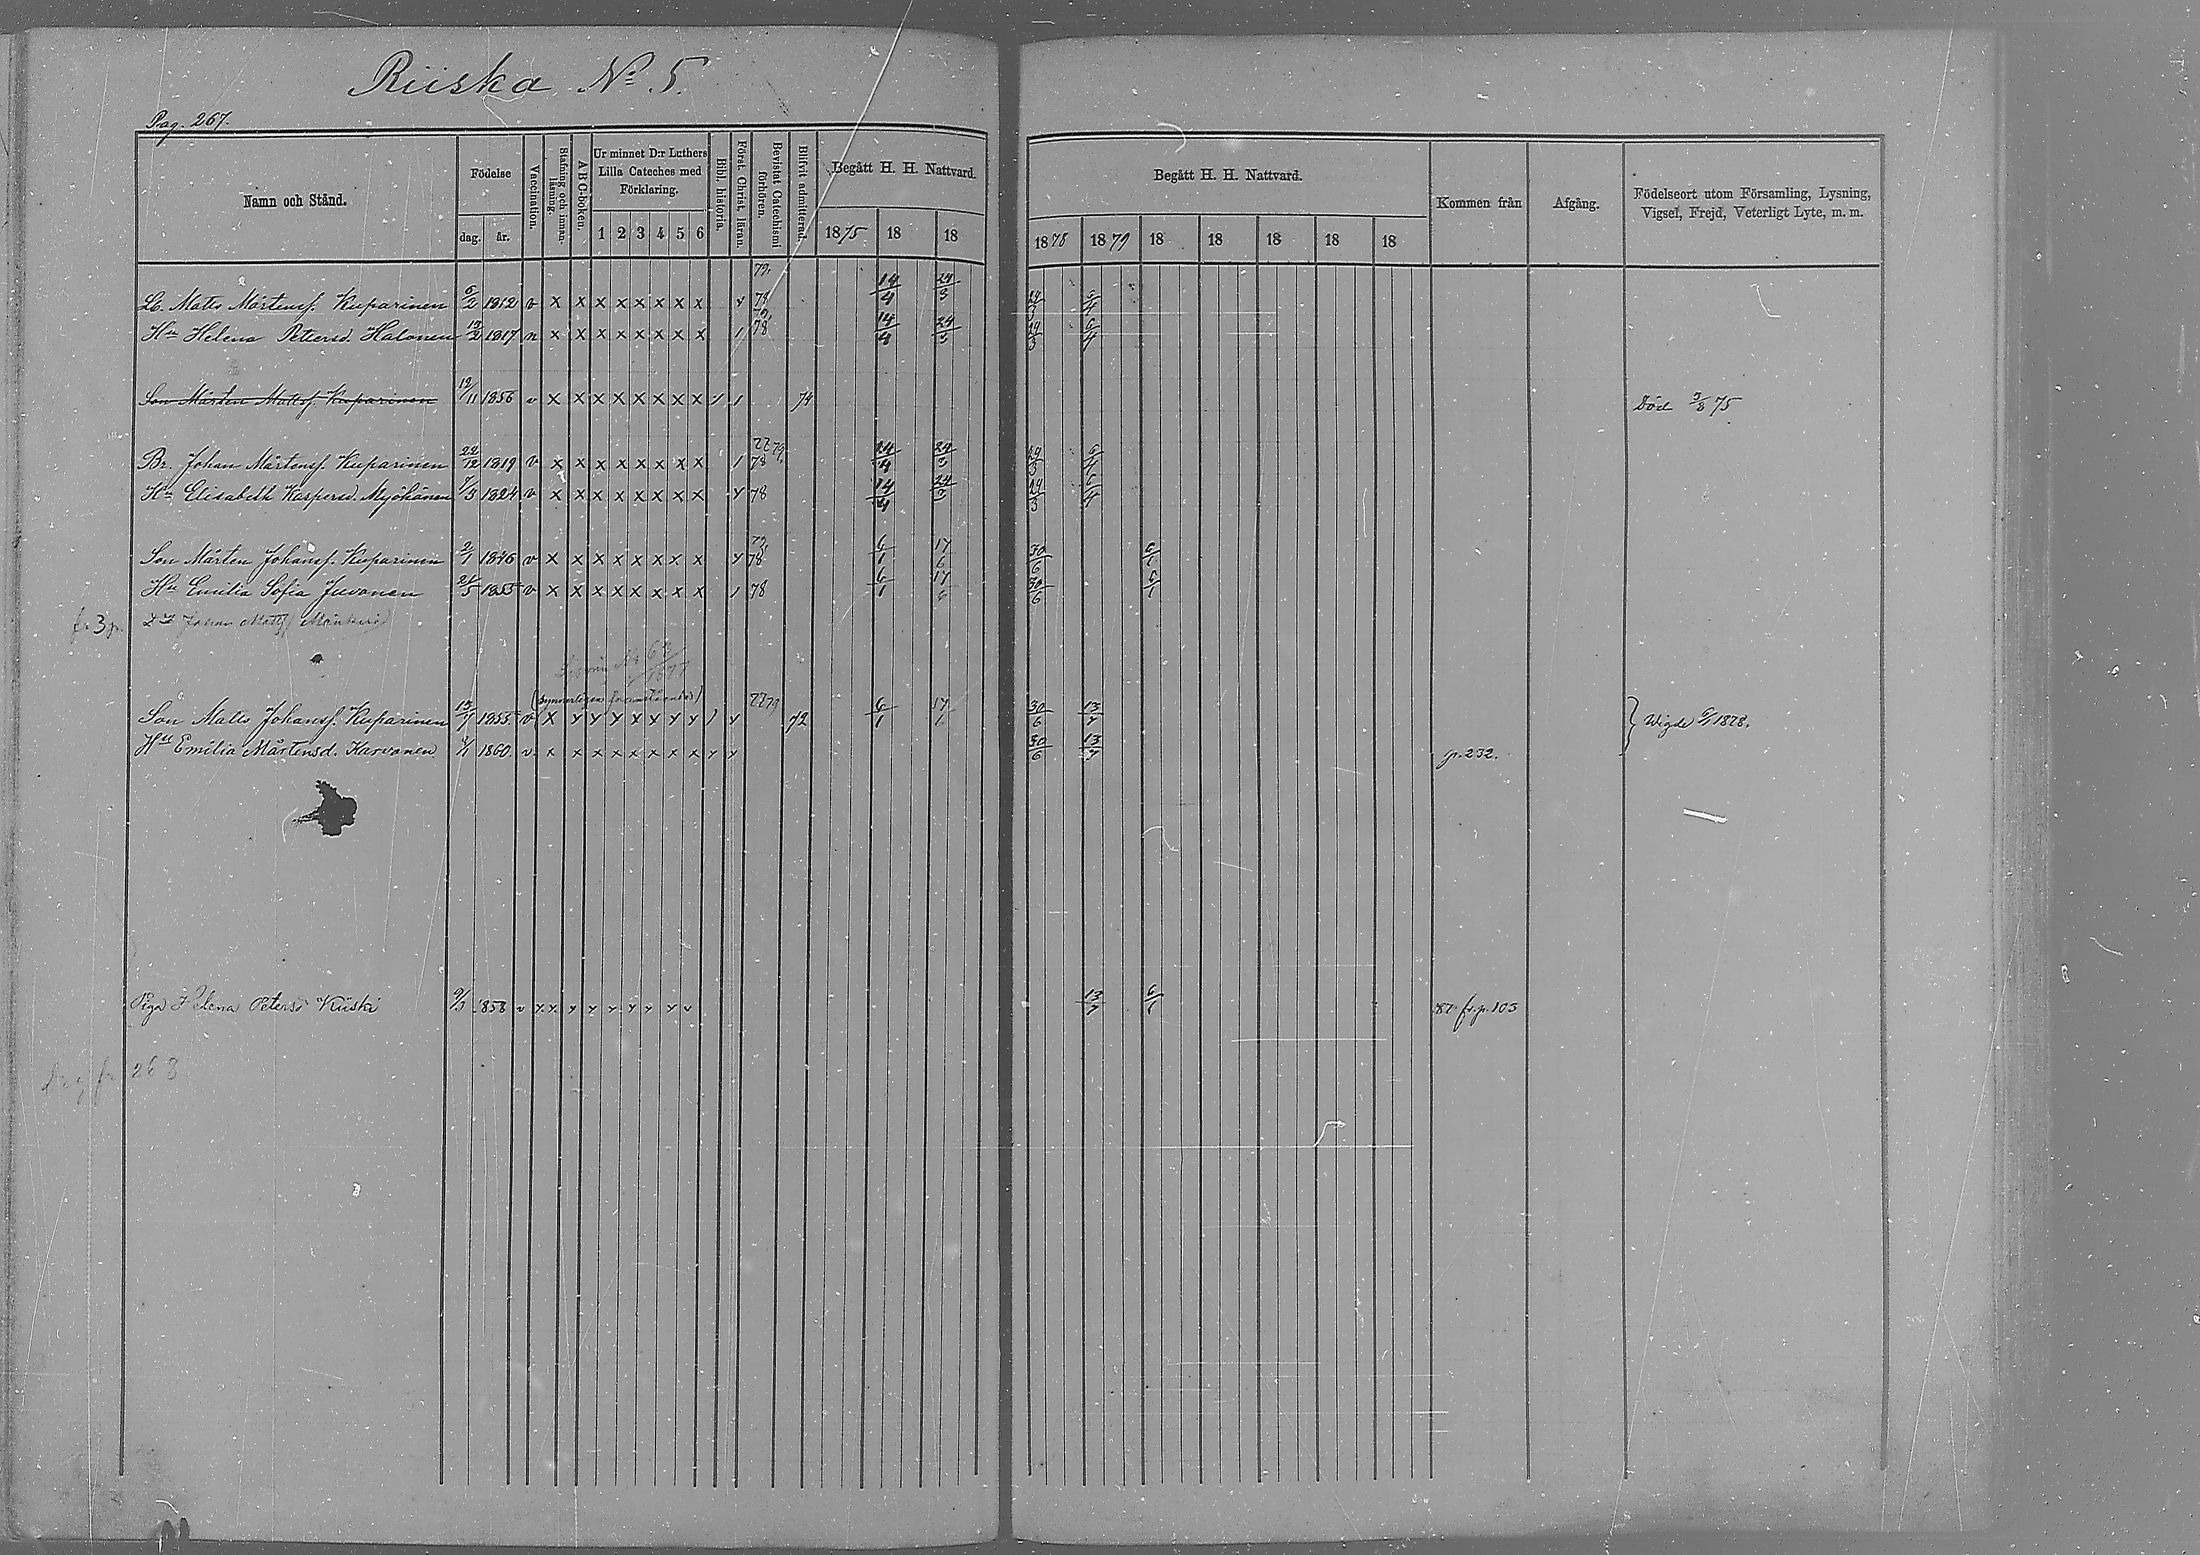 Riiska No 5.
Pag. 267.
Namn och Stånd.
Födelse
dag. år.
Vaccination.
Stafning och innanläsning.
ABC-boken.
Ur minnet D:r Luthers Lilla Cateches med Förklaring.
1 2 3 4 5 6
Bibl. historia.
Först. Christ. läran.
Bevistat Catechismi förhören.
Blifvit admitterad.
Begått H. H. Nattvard.
1875 18 18
Begått H. H. Nattvard.
1878 1879 18 18 18 18 18
Kommen från
Afgång.
Födelseort utom Församling, Lysning,
Vigsel, Frejd, Veterligt Lyte, m. m.
79.
Lb. Matts Mårtensf. Kuparinen 6/2 1812 v x x x x x x x x 78 14/4 24/3 24/3 6/4
Hu Helena Petersd. Halonen 19/2 1817 n x x x x x x x x 1 79, 78 14/4 24/3 24/3 6/4
Son Mårten Mattsf. Kuparinen 12/11 1856 v x x x x x x x x 1 1 74 Död 3/8 75
Br. Johan Mårtensf. Kuparinen 22/12 1819 v x x x x x x x x 1 77 79, 78 14/4 24/3 24/3 6/4
Hu Elisabeth Kaspersd. Myöhänen 7/3 1824 v x x x x x x x x 78 14/4 24/3 24/3 6/4
Son Mårten Johansf. Kuparinen 2/1 1846 v x x x x x x x x 79, 78 6/1 17/6 30/6 6/1
Hu Emilia Sofia Juvonen 21/5 1855 v x x x x x x x x 1 78 6/1 17/6 30/6 6/1
Johan Matts
Son Matts Johansf. Kuparinen 13/7 1855 v 77 79 72 6/1 30/6 13/7 Wigde 6/1 1878.
Hu Emilia Mårtensd. Karvonen 1860. v x x x x x x x x 30/6 13/7 p. 232.
Piga Helena Petersd Kiiski 9/3 1858 v 13/7 6/1 fr. p. 103
268